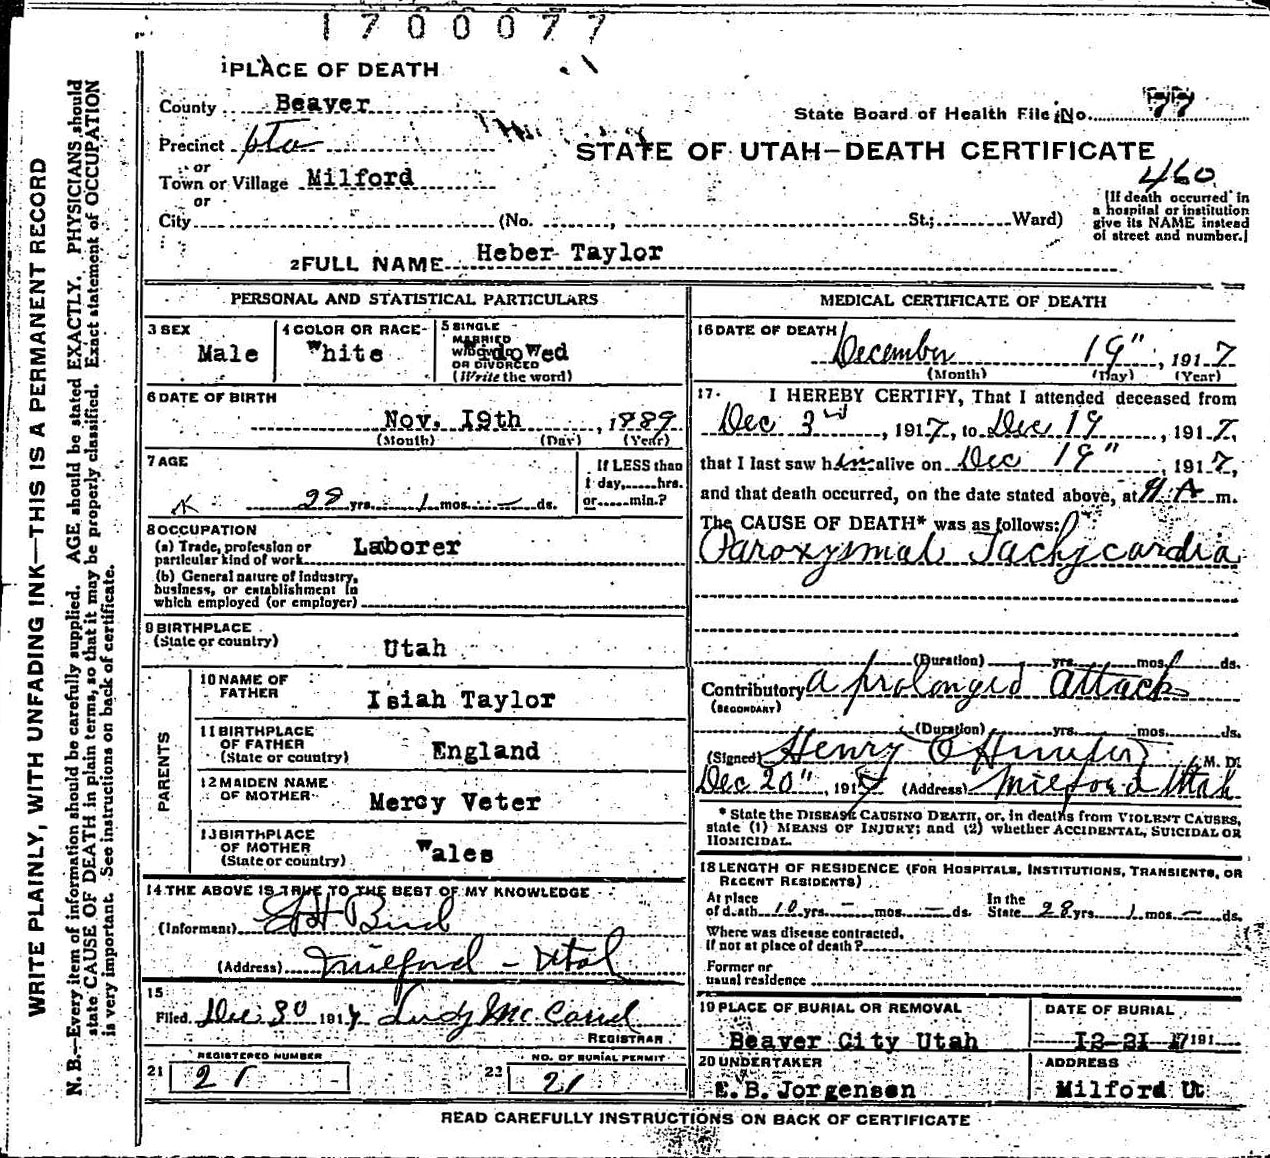 1700077
1 PLACE OF DEATH
County Beaver
State Board of Health File No. 77
Precinct
STATE OF UTAH—DEATH CERTIFICATE
or
Town or Village Milford
460
or
City (No. , St.; Ward)
(If death occurred in
a hospital or institution
give its NAME instead
of street and number.)
2 FULL NAME Heber Taylor
PERSONAL AND STATISTICAL PARTICULARS
3 SEX
Male
4 COLOR OR RACE
White
5 SINGLE
MARRIED
WIDOWED
OR DIVORCED
(Write the word)
Widowed
6 DATE OF BIRTH
Nov. 19th , 1889
(Month) (Day) (Year)
7 AGE
28 yrs. 1 mos. — ds.
If LESS than
1 day, hrs.
or min.?
8 OCCUPATION
(a) Trade, profession or
particular kind of work Laborer
(b) General nature of industry,
business, or establishment in
which employed (or employer)
9 BIRTHPLACE
(State or country) Utah
PARENTS
10 NAME OF
FATHER Isiah Taylor
11 BIRTHPLACE
OF FATHER
(State or country) England
12 MAIDEN NAME
OF MOTHER Mercy Veter
13 BIRTHPLACE
OF MOTHER
(State or country) Wales
14 THE ABOVE IS TRUE TO THE BEST OF MY KNOWLEDGE
(Informant) Bird
(Address) Milford - Utah
15
Filed Dec 30 1917
REGISTRAR
21 REGISTERED NUMBER
21
22 NO. OF BURIAL PERMIT
21
MEDICAL CERTIFICATE OF DEATH
16 DATE OF DEATH
December 19" , 1917
(Month) (Day) (Year)
17. I HEREBY CERTIFY, That I attended deceased from
Dec 3rd , 1917, to Dec 19 , 1917,
that I last saw him alive on Dec 19" , 1917,
and that death occurred, on the date stated above, at A m.
The CAUSE OF DEATH* was as follows:
Paroxysmal Tachycardia
(Duration) yrs. mos. ds.
Contributory a prolonged attack
(SECONDARY)
(Duration) yrs. mos. ds.
(Signed) Henry , M. D.
Dec 20", 191 (Address) Milford Utah
* State the DISEASE CAUSING DEATH, or, in deaths from VIOLENT CAUSES,
state (1) MEANS OF INJURY; and (2) whether ACCIDENTAL, SUICIDAL OR
HOMICIDAL.
18 LENGTH OF RESIDENCE (FOR HOSPITALS, INSTITUTIONS, TRANSIENTS, OR
RECENT RESIDENTS)
At place
of death 10 yrs. — mos. — ds.
In the
State 28 yrs. 1 mos. — ds.
Where was disease contracted,
if not at place of death?
Former or
usual residence
19 PLACE OF BURIAL OR REMOVAL
Beaver City Utah
DATE OF BURIAL
12-21-17 191
20 UNDERTAKER
E. B. Jorgensen
ADDRESS
Milford Ut
READ CAREFULLY INSTRUCTIONS ON BACK OF CERTIFICATE
WRITE PLAINLY, WITH UNFADING INK—THIS IS A PERMANENT RECORD
N. B.—Every item of information should be carefully supplied. AGE should be stated EXACTLY. PHYSICIANS should
state CAUSE OF DEATH in plain terms, so that it may be properly classified. Exact statement of OCCUPATION
is very important. See instructions on back of certificate.